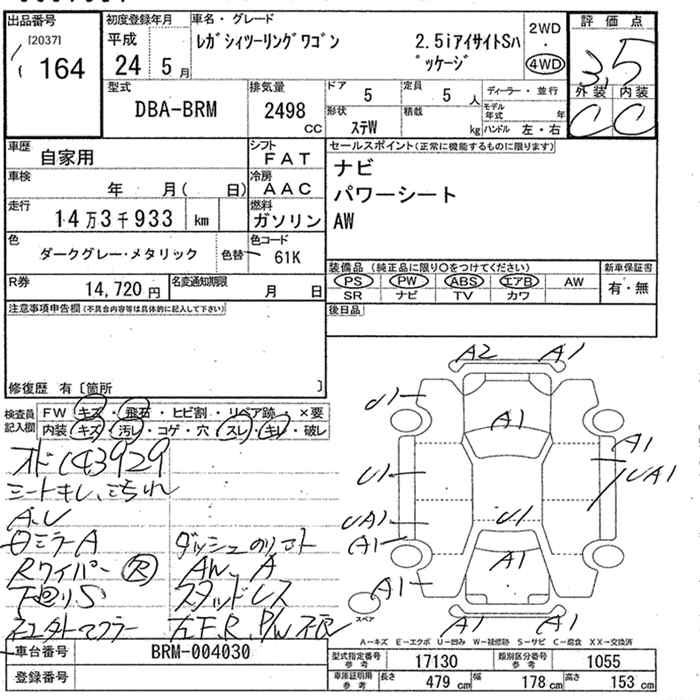 出品番号
[2037]
164
初度登録年月
平成
24 5 月
車名・グレード
レガシィツーリングワゴン 2.5iアイサイトSパッケージ
2WD
・
4WD
評価点
3.5
外装 内装
C C
型式
DBA-BRM
排気量
2498
CC
ドア
5
定員
5 人
ディーラー・並行
形状
ステW
積載
kg
モデル年式 年
ハンドル 左・右
車歴
自家用
シフト
FAT
車検
年 月( 日)
冷房
AAC
走行
14万3千933 km
燃料
ガソリン
色
ダークグレー・メタリック
色替
色コード
61K
R券
14,720 円
名変通知期限
月 日
セールスポイント(正常に機能するものに限ります)
ナビ
パワーシート
AW
装備品 (純正品に限り〇をつけてください)
PS PW ABS エアB AW
SR ナビ TV カワ
新車保証書
有・無
後日品
注意事項申告欄(不具合内容等は具体的に記入して下さい)
修復歴 有〔箇所 〕
検査員記入欄
FW キズ・飛石・ヒビ割・リペア跡・×要
内装 キズ・汚レ・コゲ・穴・スレ・キレ・破レ
オド143929
A.U
ロミラーA ダッシュ
Rワイパー Ⓡ AW A
下廻りS スタッドレス
社外マフラー 左F,R,P/W不良
A2 A1
U1
A1
A1
U1
UA1
UA1
U1
A1
A1
A1
A1 A1
スペア
A-キズ E-エクボ U-凹み W-補修跡 S-サビ C-腐食 XX-交換済
車台番号
BRM-004030
登録番号
型式指定番号 参考
17130
類別区分番号 参考
1055
車庫証明用 参考
長さ 479 cm
幅 178 cm
高さ 153 cm